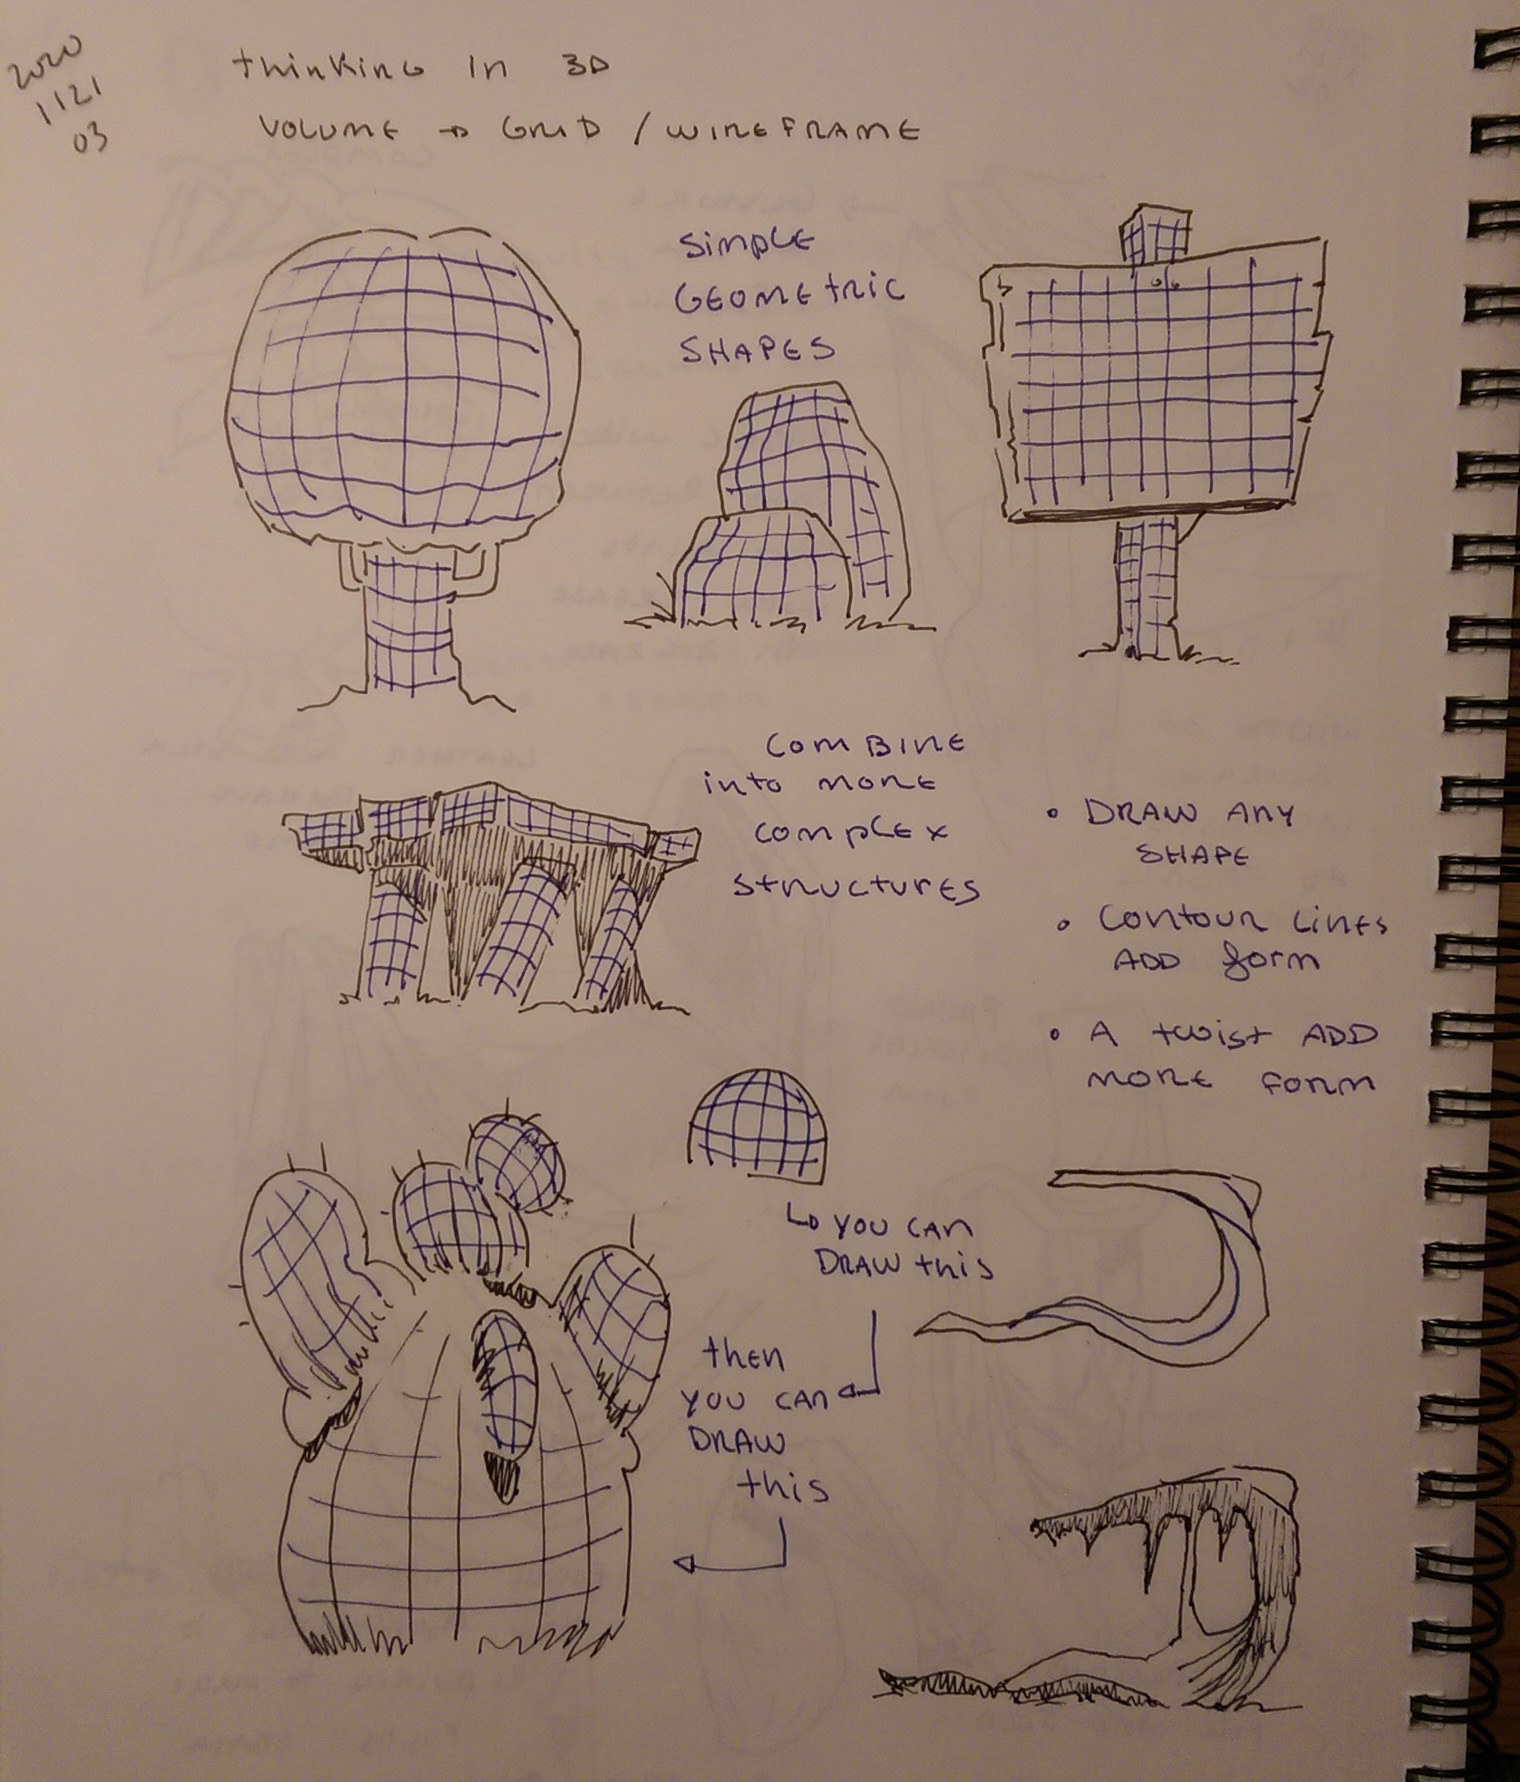 2020
1121
03
thinking in 3D
VOLUME → GRID / WIREFRAME
SIMPLE
GEOMETRIC
SHAPES
COMBINE
into MORE
COMPLEX
STRUCTURES
• DRAW ANY
SHAPE
• CONTOUR LINES
ADD form
• A twist ADD
MORE FORM
↳ YOU CAN
DRAW this
then
YOU CAN
DRAW
this